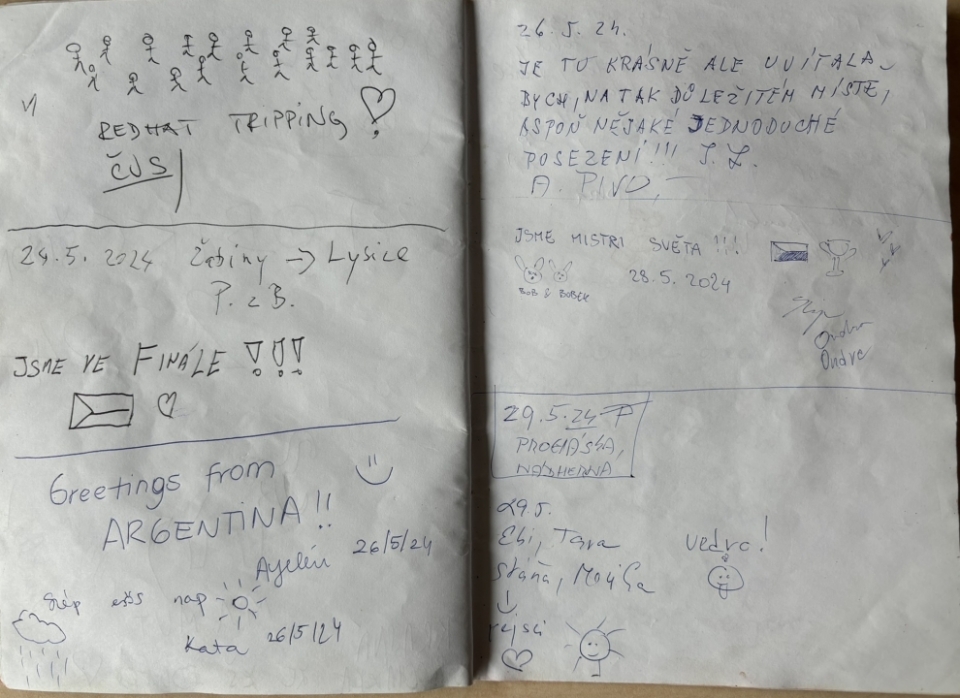 REDHAT TRIPPING
ČUS
24.5. 2024 Žabiny → Lysice
P. z B.
JSME VE FINÁLE !!!
Greetings from
ARGENTINA !!
Ayelén 26/5/24
Szép esős nap
Kata 26/5/24
26.5.24.
JE TU KRÁSNĚ ALE UVÍTALA
BYCH, NA TAK DŮLEŽITÉM MÍSTE,
ASPOŇ NĚJAKÉ JEDNODUCHÉ
POSEZENÍ!!! J. Z.
A. PIVO,
JSME MISTŘI SVĚTA !!!
BOB & BOBEK 28.5.2024
Ondra
Ondra
29.5.24
NÁDHERNÁ
29.5.
Ebi, Tara
Stáňa,
vedro!